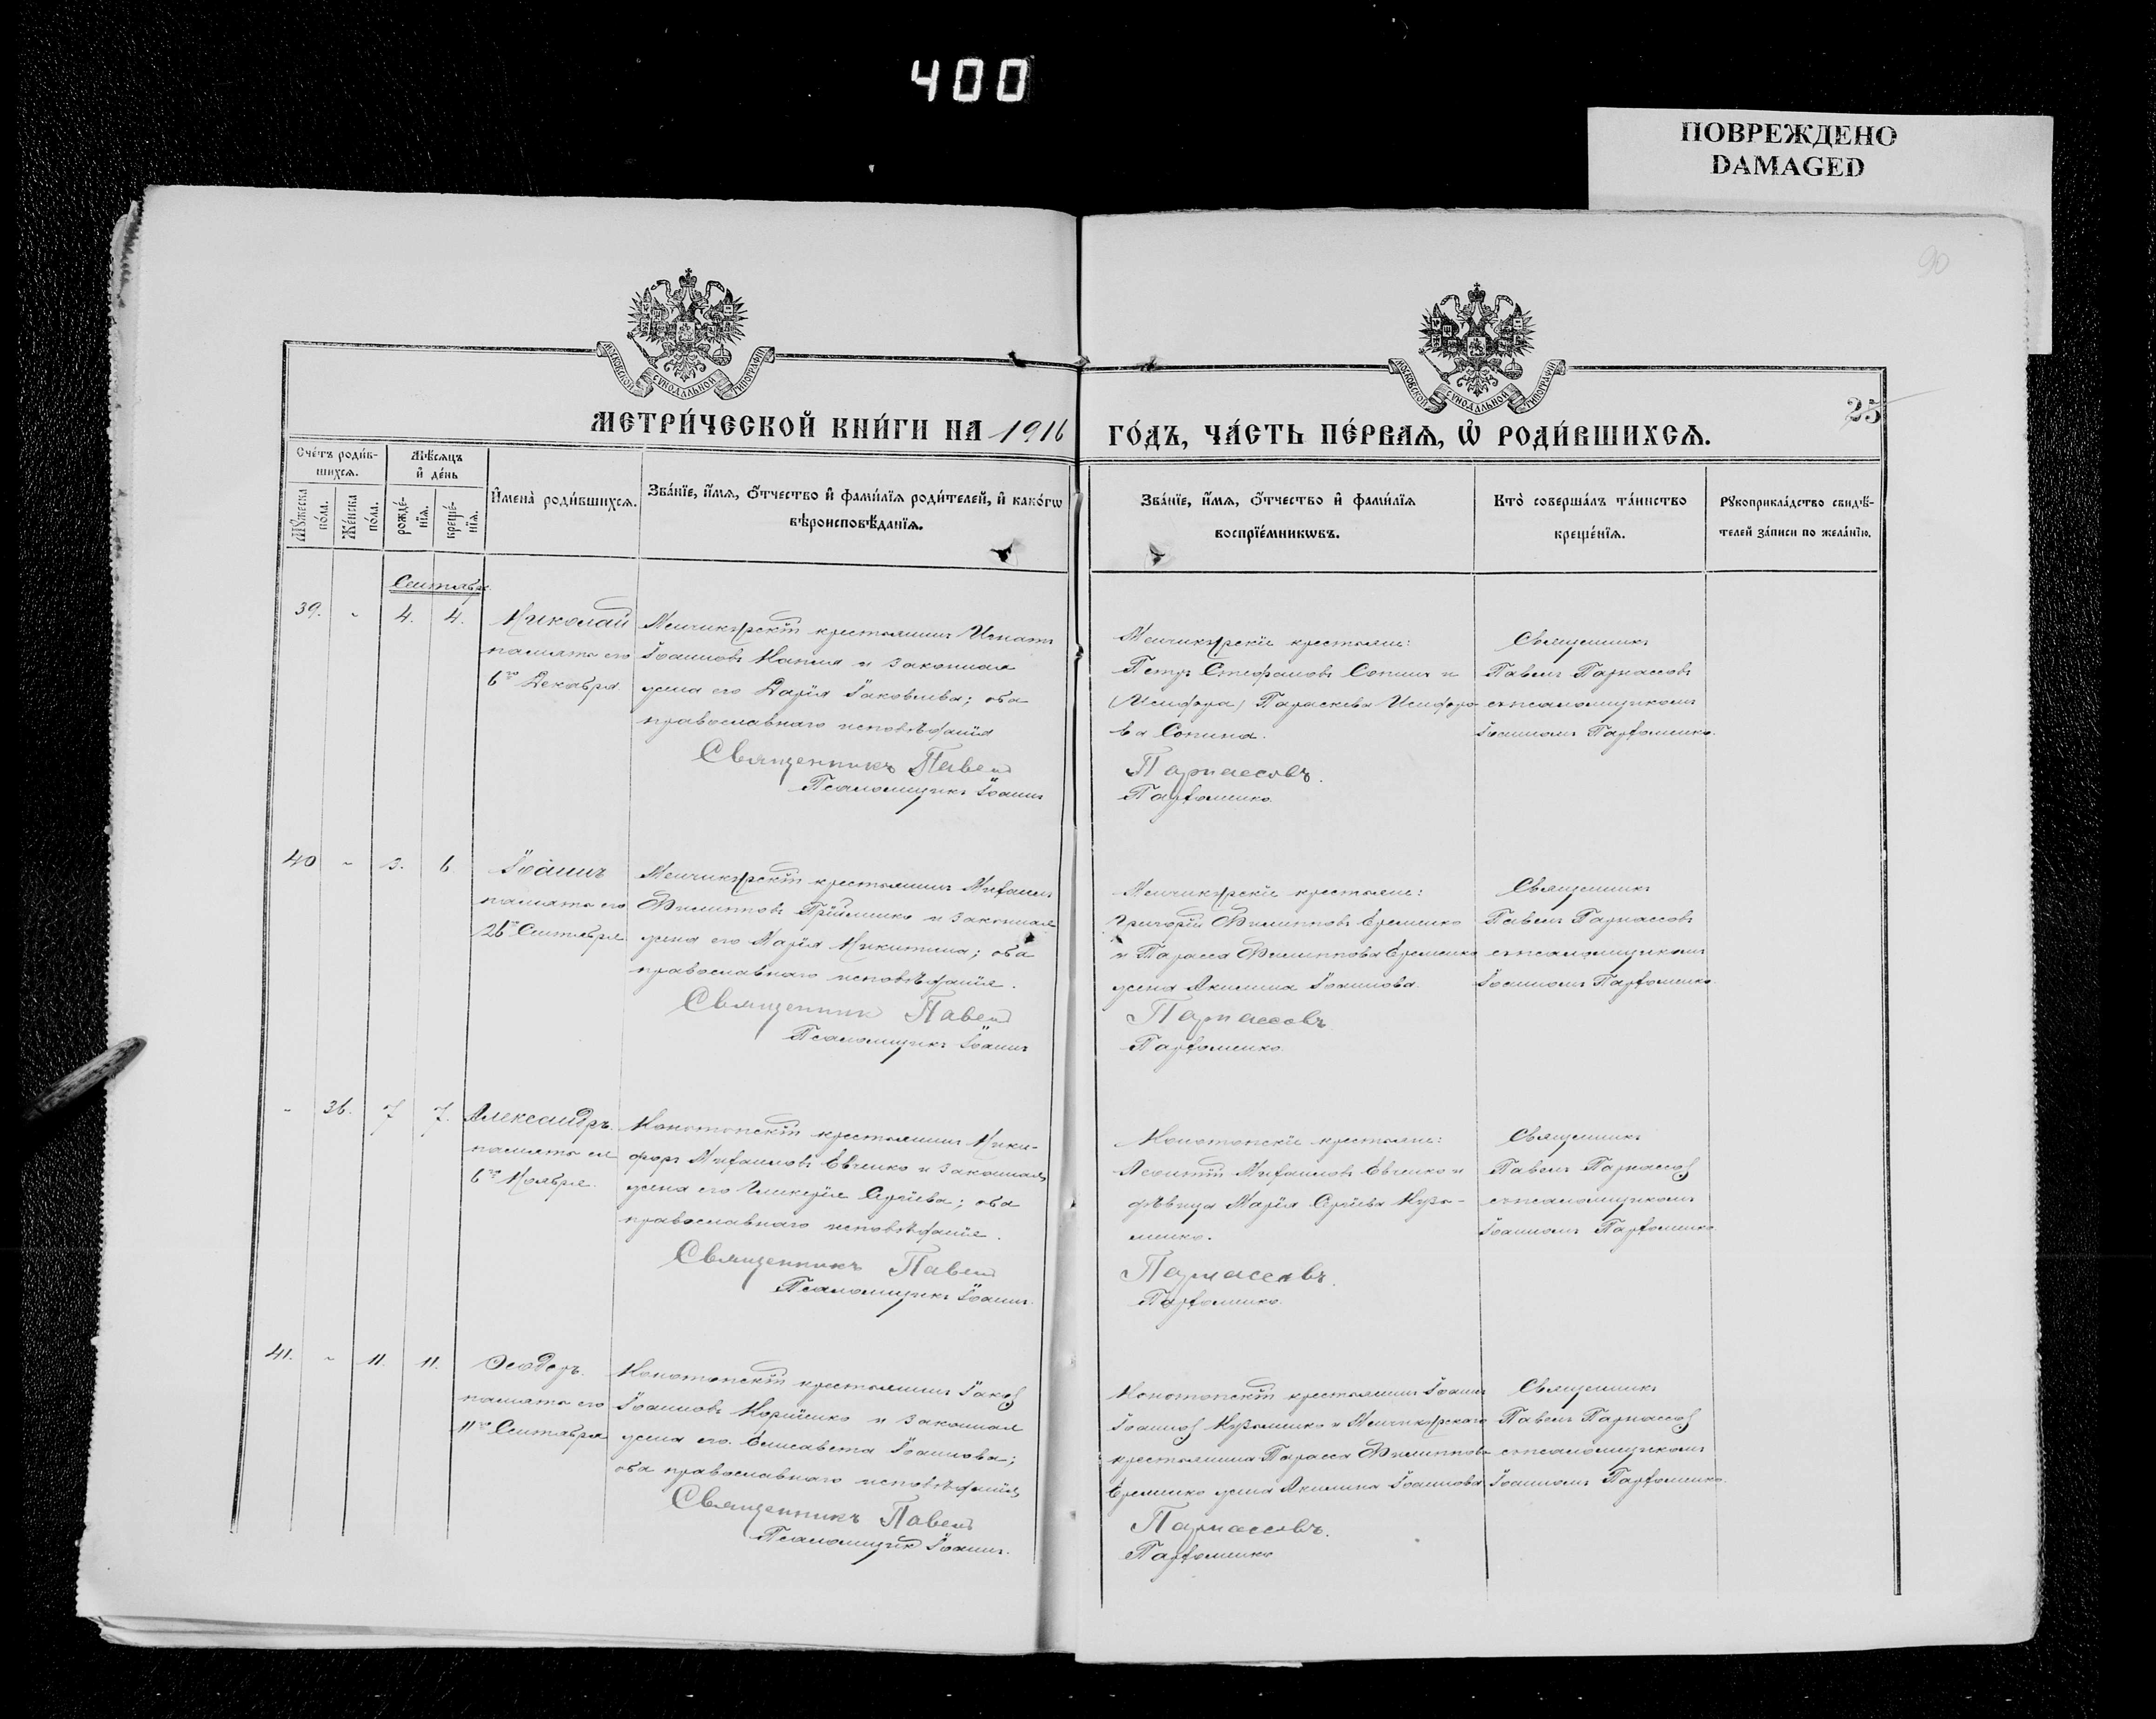 400
ПОВРЕЖДЕНО
DAMAGED
90
МОСКОВСКОЙ СѴНОДАЛЬНОЙ ТИПОГРАФІИ
МОСКОВСКОЙ СѴНОДАЛЬНОЙ ТИПОГРАФІИ
25
МЕТРИ́ЧЕСКОЙ КНИ́ГИ НА 1916 ГО́ДЪ, ЧА́СТЬ ПЕ́РВАЯ, Ѡ҆ РОДИ́ВШИХСЯ.
Сче́тъ роди́в-
шихся.
Мѣ́сяцъ
и҆ де́нь
Мꙋ́жеска
по́ла.
Же́нска
по́ла.
рожде́-
нїя.
креще́-
нїя.
И҆мена̀ роди́вшихся.
Зва́нїе, и҆́мя, ѻ҆́тчество и҆ фами́лїя роди́телей, и҆ како́гѡ
вѣроисповѣ́данїя.
Зва́нїе, и҆́мя, ѻ҆́тчество и҆ фами́лїя
воспрїе́мникѡвъ.
Кто̀ соверша́лъ та́инство
креще́нїя.
Рꙋкоприкла́дство свидѣ́-
телей за́писи по жела́нїю.
Сентябрь.
39. - 4. 4.
Николай
память его
6го Декабря
крестьянинъ Игнатъ
Іоанновъ и законная
жена его Дарія Іаковлева; оба
православнаго исповѣданія
Священникъ Павелъ
Псаломщикъ Іоаннъ
крестьяне:
Петръ Стефановъ Сопинъ и
Параскева
ва Сопина.
Парнассовъ.
Парфоменко.
Священникъ
Павелъ Парнассовъ
съ псаломщикомъ
Іоанномъ Парфоменко.
40 - 3. 6
Іоаннъ
память его
26го Сентября
крестьянинъ Михаилъ
Филипповъ и законная
жена его Марія Никитина; оба
православнаго исповѣданія.
Священникъ Павелъ
Псаломщикъ Іоаннъ
крестьяне:
Григорій Филипповъ Еременко
и Тарасса Филиппова Еременко
жена Акилина Іоаннова.
Парнассовъ
Парфоменко.
Священникъ
Павелъ Парнассовъ
съ псаломщикомъ
Іоанномъ Парфоменко.
- 36. 7 7.
Александръ.
память ея
6го Ноября.
Конотопскій крестьянинъ Ники-
форъ Михаиловъ Евченко и законная
жена его Гликерія Сергіева; оба
православнаго исповѣданія.
Священникъ Павелъ
Псаломщикъ Іоаннъ.
Конотопскіе крестьяне:
Леонтій Михаиловъ Евченко и
дѣвица Марія Сергіева Кузь-
менко.
Парнассовъ.
Парфоменко.
Священникъ
Павелъ Парнассовъ
съ псаломщикомъ
Іоанномъ Парфоменко.
41. - 11. 11.
Ѳеодоръ.
память его
11го Сентября
Конотопскій крестьянинъ Іаковъ
Іоанновъ и законная
жена его Елисавета Іоаннова;
оба православнаго исповѣданія
Священникъ Павелъ
Псаломщикъ Іоаннъ.
Конотопскій крестьянинъ Іоаннъ
Іоанновъ Кузьменко и
крестьянина Тарасса Филиппова
Еременко жена Акилина Іоаннова
Парнассовъ.
Парфоменко
Священникъ
Павелъ Парнассовъ
съ псаломщикомъ
Іоанномъ Парфоменко.